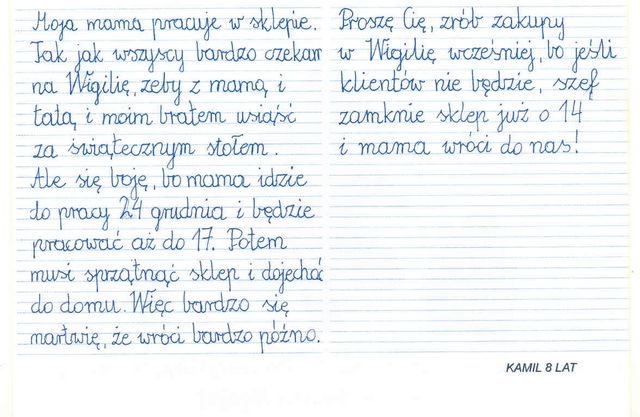 Moja mama pracuje w sklepie.
Tak jak wszyscy bardzo czekam
na Wigilię, żeby z mamą i
tatą i moim bratem usiąść
za świątecznym stołem.
Ale się boję, bo mama idzie
do pracy 24 grudnia i będzie
pracować aż do 17. Potem
musi sprzątnąć sklep i dojechać
do domu. Więc bardzo się
martwię, że wróci bardzo późno.
Proszę Cię, zrób zakupy
w Wigilię wcześniej, bo jeśli
klientów nie będzie, szef
zamknie sklep już o 14
i mama wróci do nas!
KAMIL 8 LAT